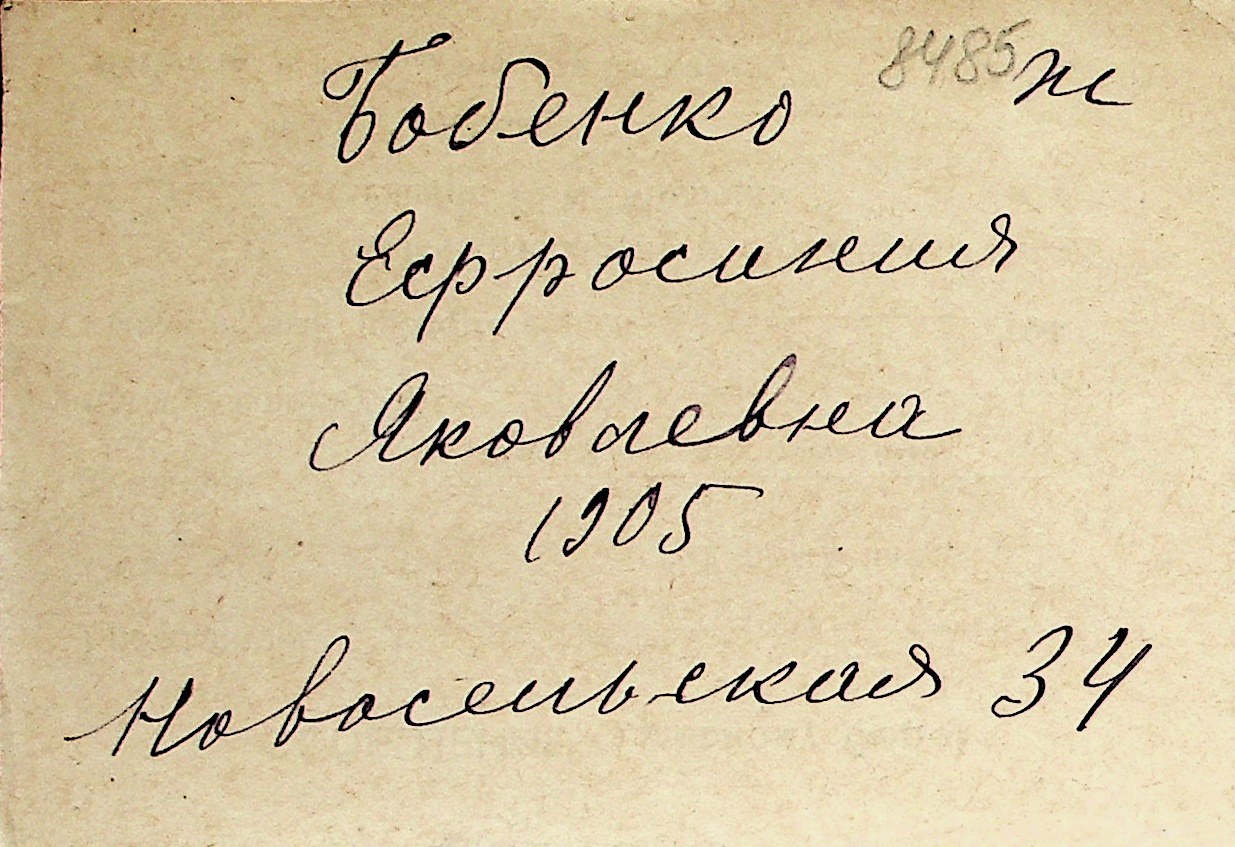 Бобенко 8485 ж
Ефросиния
Яковлевна
1905
Новосельская 34